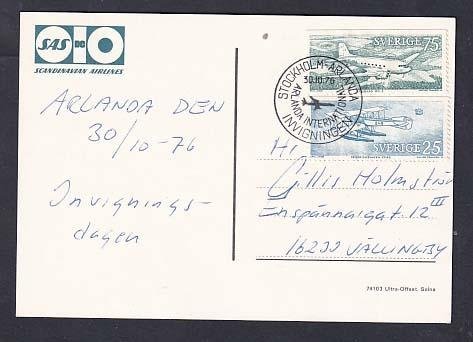 SAS DC 10
SCANDINAVIAN AIRLINES
ARLANDA DEN
30/10-76
Invignings-
dagen
SVERIGE 75
STOCKHOLM-ARLANDA
30.10.76
ARLANDA INTERNATIONAL
INVIGNINGEN
SVERIGE 25
Hr
Gillis Holmström
Enspännargat 12 III
16233 VÄLLINGBY
74103 Ultra-Offset, Solna